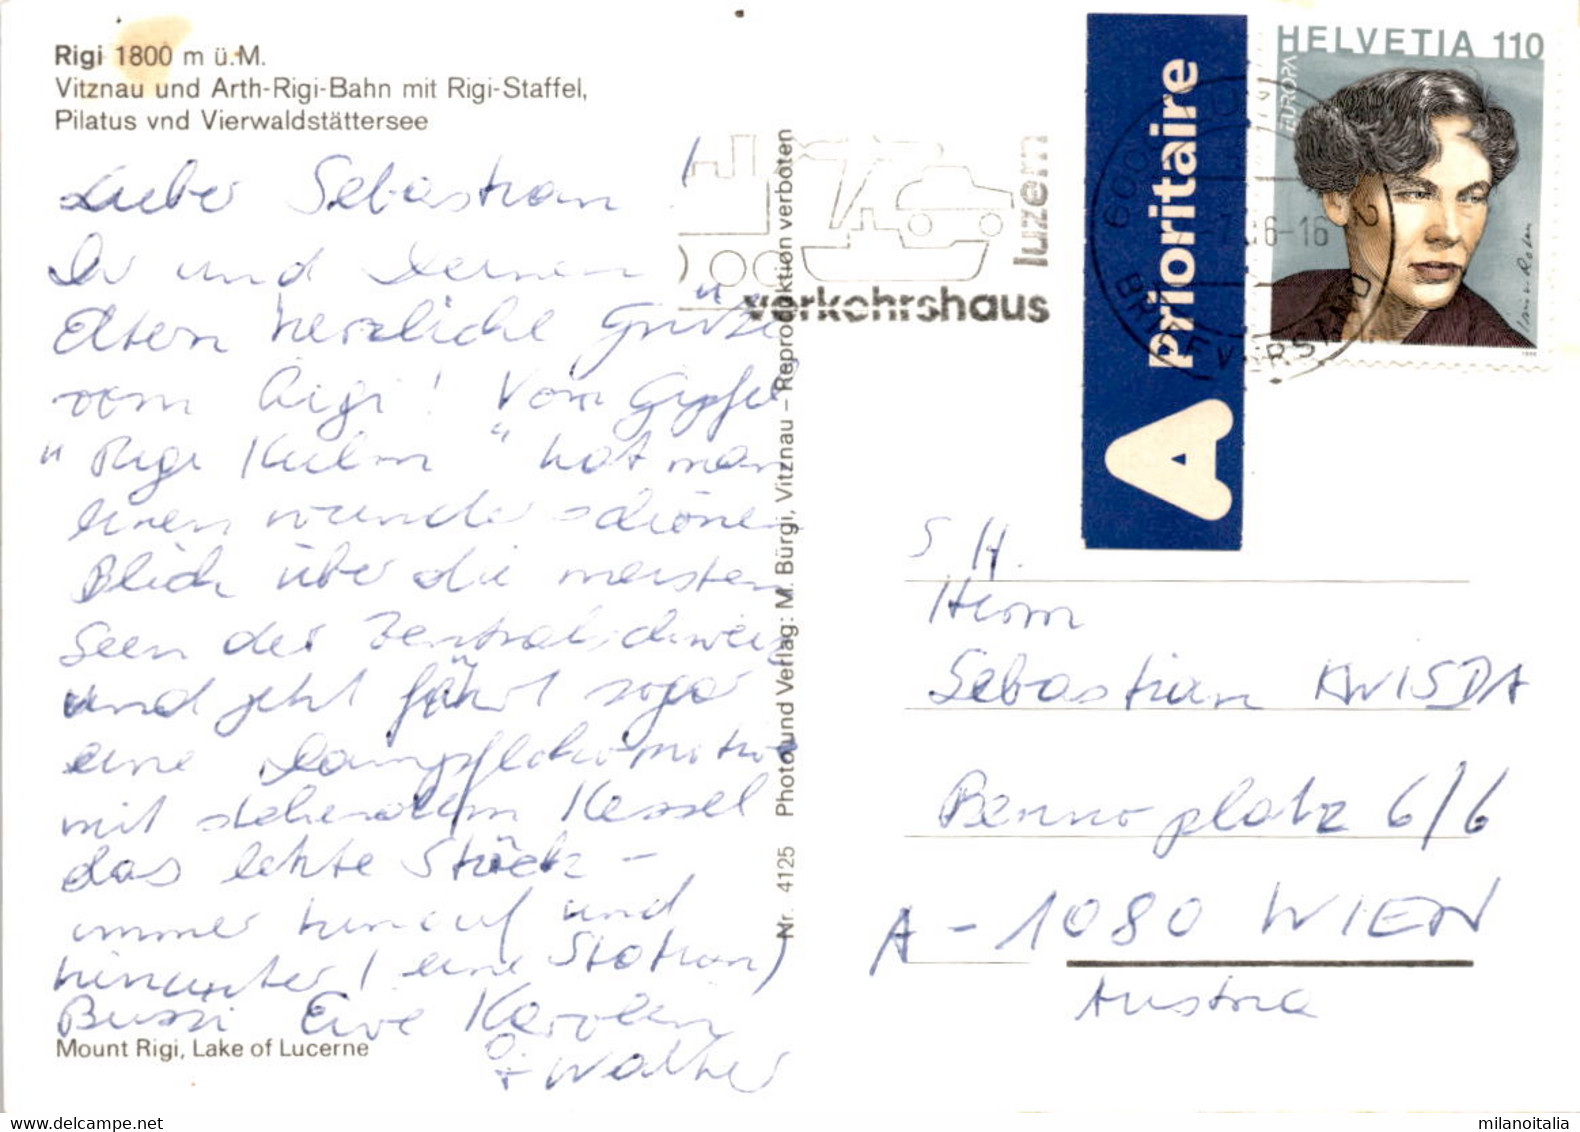 Rigi 1800 m ü.M.
Vitznau und Arth-Rigi-Bahn mit Rigi-Staffel,
Pilatus vnd Vierwaldstättersee
Lieber Sebastian !
Dir und Deinen
Eltern herzliche Grüße
vom Rigi! Vom Gipfel
"Rigi Kulm" hat man
einen wunderschönen
Blick über die meisten
Seen der Zentralschweiz
und jetzt fährt sogar
eine Dampflokomotive
mit stehendem Kessel
das letzte Stück -
immer hinauf und
hinunter (eine Station)
Bussi Eure Karolin
+ Walter
Mount Rigi, Lake of Lucerne
Nr. 4125 Photo und Verlag: M. Bürgi, Vitznau – Reproduktion verboten
luzern
verkehrshaus
A prioritaire
HELVETIA 110
EUROPA
BRIEFVERSAND
S. H.
Herrn
Sebastian KWISDA
Bennoplatz 6/6
A-1080 WIEN
Austria
milanoitalia